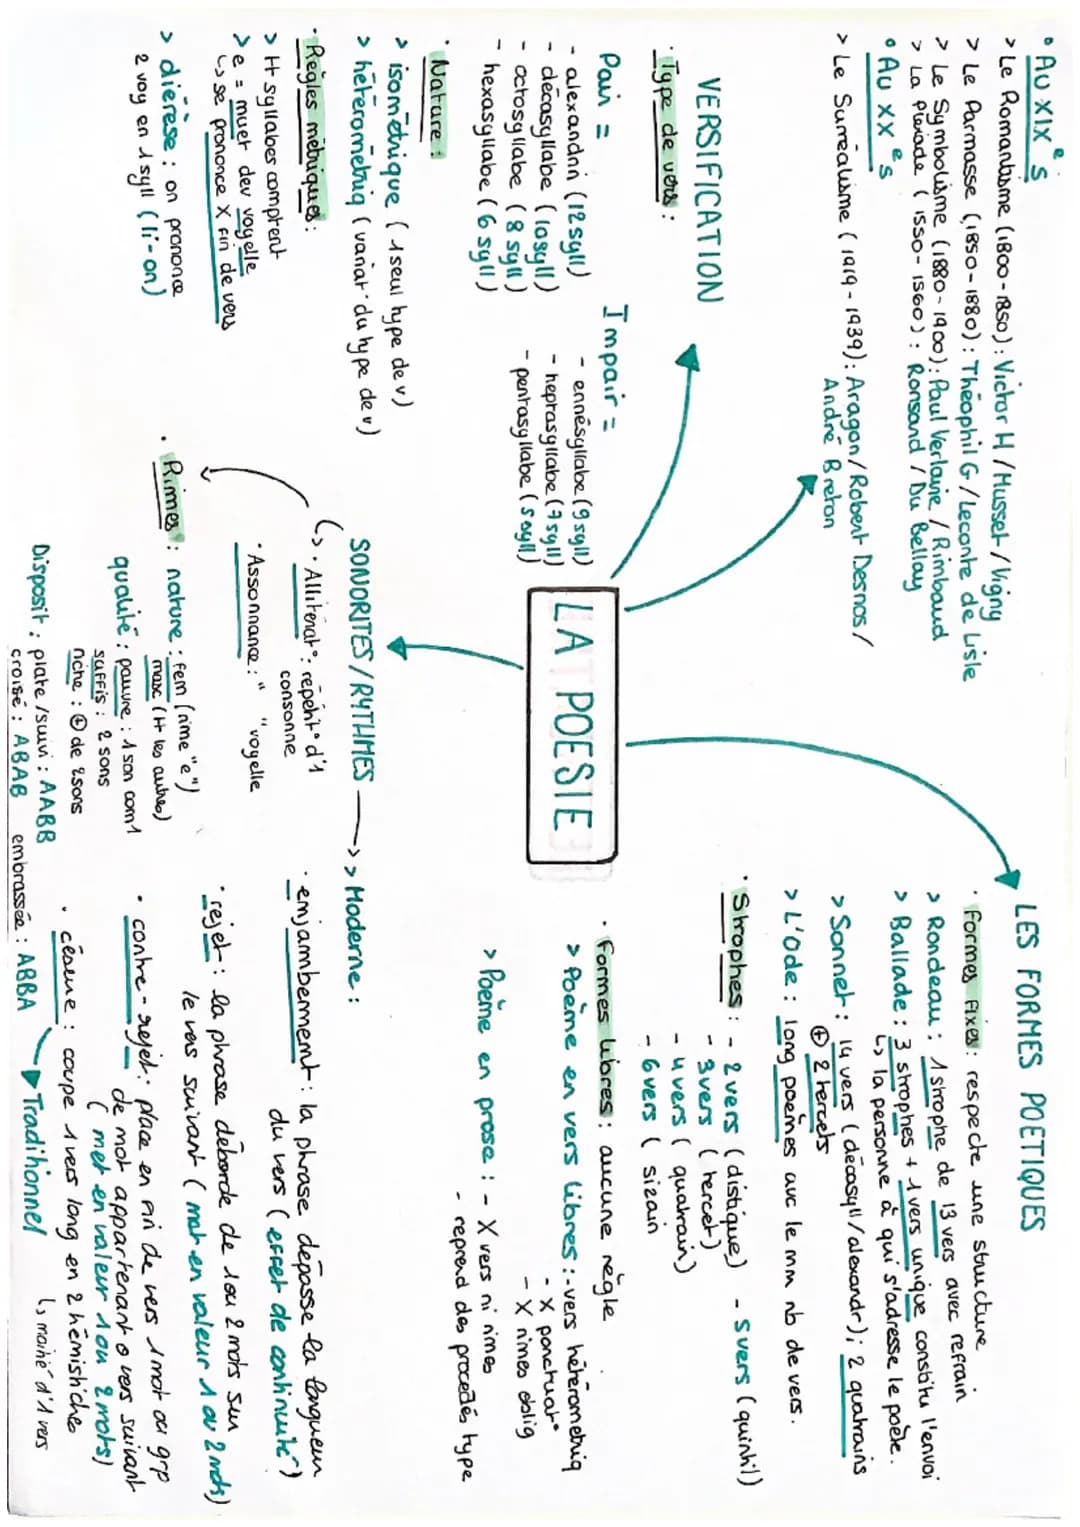 • Au XIXe s
> Le Romantisme (1800-1850): Victor H / Musset / Vigny
> Le Parmasse (1850-1880): Théophil G / Leconte de Lisle
> Le Symbolisme (1880-1900): Paul Verlaine / Rimbaud
> La Pleiade (1550-1560): Ronsard / Du Bellay
• Au XXe s
> Le Surréalisme (1919-1939): Aragon / Robert Desnos /
André Breton
VERSIFICATION
· Type de vers:
Pair =
- alexandrin (12 syll)
- décasyllabe (10 syll)
- octosyllabe (8 syll)
- hexasyllabe (6 syll)
Impair =
- ennésyllabe (9 syll)
- heptasyllabe (7 syll)
- pentasyllabe (5 syll)
· Nature:
> isométrique (1 seul type de v)
> hétérométriq (variat° du type de v)
· Règles métriques:
> H syllabes comptent
> e = muet dev voyelle
↳ se prononce X fin de vers
> dièrèse: on prononce
2 voy en 1 syll (li-on)
LA POESIE
LES FORMES POETIQUES
· Formes fixes: respecte une structure
> Rondeau: 1 strophe de 13 vers avec refrain
> Ballade: 3 strophes + 1 vers unique constitu l'envoi
↳ la personne à qui s'adresse le poète.
> Sonnet: 14 vers (décasyll/alexandr); 2 quatrains
⊕ 2 tercets
> L'Ode: long poèmes avc le mm nb de vers.
· Strophes: - 2 vers (distique) - 5 vers (quintil)
- 3 vers (tercet)
- 4 vers (quatrain)
- 6 vers (sizain
· Formes libres: aucune règle
> Poème en vers libres: - vers hétérométriq
- X ponctuat°
- X rimes oblig
> Poème en prose: - X vers ni rimes
- reprend des procédés type
SONORITES / RYTHMES → > Moderne:
↳ · Allitérat°: répétit° d'1
consonne
· Assonnance: " " voyelle
· Rimes: nature: fem (rime "e")
masc (H les autres)
qualité: pauvre: 1 son com1
suffis: 2 sons
riche: ⊕ de 2 sons
Disposit: plate / suivi: AABB
croisé: ABAB embrassée: ABBA
· enjambement: la phrase dépasse la longueur
du vers (effet de continuité)
· rejet: la phrase déborde de 1 ou 2 mots sur
le vers suivant (met en valeur 1 ou 2 mots)
· contre-rejet: place en fin de vers 1 mot ou grp
de mot appartenant o vers suivant
(met en valeur 1 ou 2 mots)
· césure: coupe 1 vers long en 2 hémistiches
→ Traditionnel ↳ moitié d'1 vers